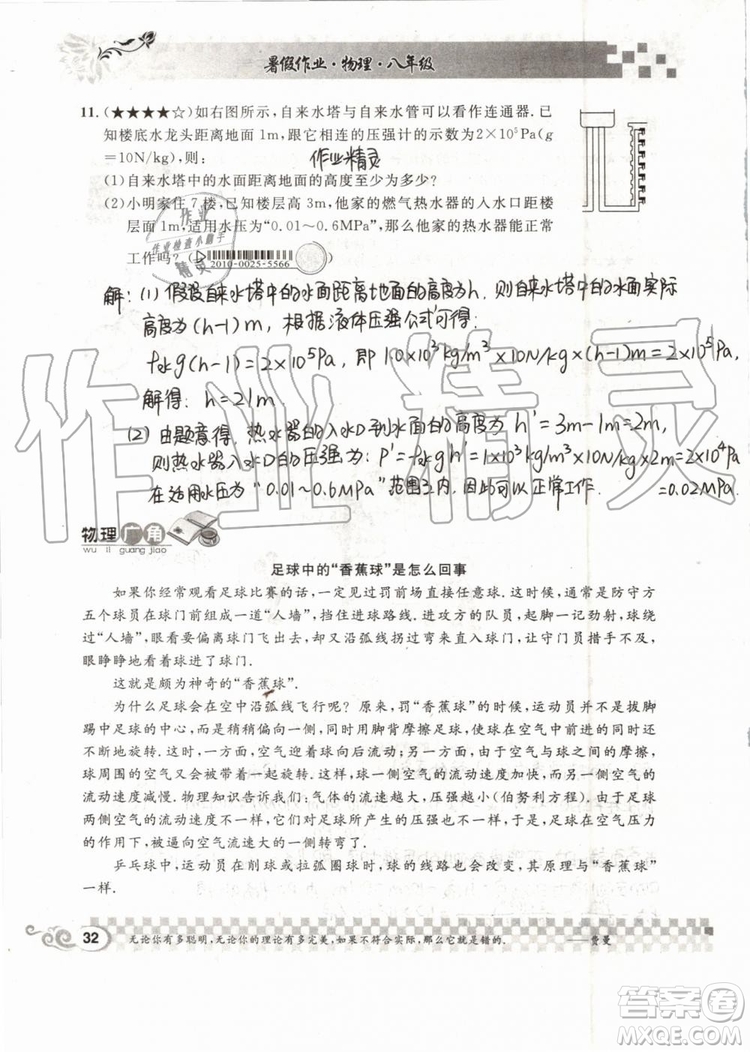 暑假作业·物理·八年级
11.(★★★★☆)如右图所示,自来水塔与自来水管可以看作连通器.已
知楼底水龙头距离地面1m,跟它相连的压强计的示数为2×10⁵Pa(g
=10N/kg),则:
作业精灵
(1)自来水塔中的水面距离地面的高度至少为多少?
(2)小明家住7楼,已知楼层高3m,他家的燃气热水器的入水口距楼
层面1m,适用水压为“0.01~0.6MPa”,那么他家的热水器能正常
工作吗?
2010-0025-5566
作业
作业检查小帮手
精灵
解:(1)假设自来水塔中的水面距离地面的高度为h,则自来水塔的水面实际
高度为(h-1)m,根据液体压强公式可得:
ρ水g(h-1)=2×10⁵Pa,即1.0×10³kg/m³×10N/kg×(h-1)m=2×10⁵Pa,
解得:h=21m.
(2)由题意得,热水器的入水口到水面的高度为h'=3m-1m=2m,
则热水器入水口的压强为:P'=ρ水gh'=1×10³kg/m³×10N/kg×2m=2×10⁴Pa
=0.02MPa.
在适用水压为“0.01~0.6MPa”范围之内,因此可以正常工作.
作业精灵
物理广角
wu li guang jiao
足球中的“香蕉球”是怎么回事
如果你经常观看足球比赛的话,一定见过罚前场直接任意球.这时候,通常是防守方
五个球员在球门前组成一道“人墙”,挡住进球路线.进攻方的队员,起脚一记劲射,球绕
过“人墙”,眼看要偏离球门飞出去,却又沿弧线拐过弯来直入球门,让守门员措手不及,
眼睁睁地看着球进了球门.
这就是颇为神奇的“香蕉球”.
为什么足球会在空中沿弧线飞行呢?原来,罚“香蕉球”的时候,运动员并不是拔脚
踢中足球的中心,而是稍稍偏向一侧,同时用脚背摩擦足球,使球在空气中前进的同时还
不断地旋转.这时,一方面,空气迎着球向后流动;另一方面,由于空气与球之间的摩擦,
球周围的空气又会被带着一起旋转.这样,球一侧空气的流动速度加快,而另一侧空气的
流动速度减慢.物理知识告诉我们:气体的流速越大,压强越小(伯努利方程).由于足球
两侧空气的流动速度不一样,它们对足球所产生的压强也不一样,于是,足球在空气压力
的作用下,被逼向空气流速大的一侧转弯了.
乒乓球中,运动员在削球或拉弧圈球时,球的线路也会改变,其原理与“香蕉球”
一样.
32
无论你有多聪明,无论你的理论有多完美,如果不符合实际,那么它就是错的.
——费曼
答案圈
MXQE.COM